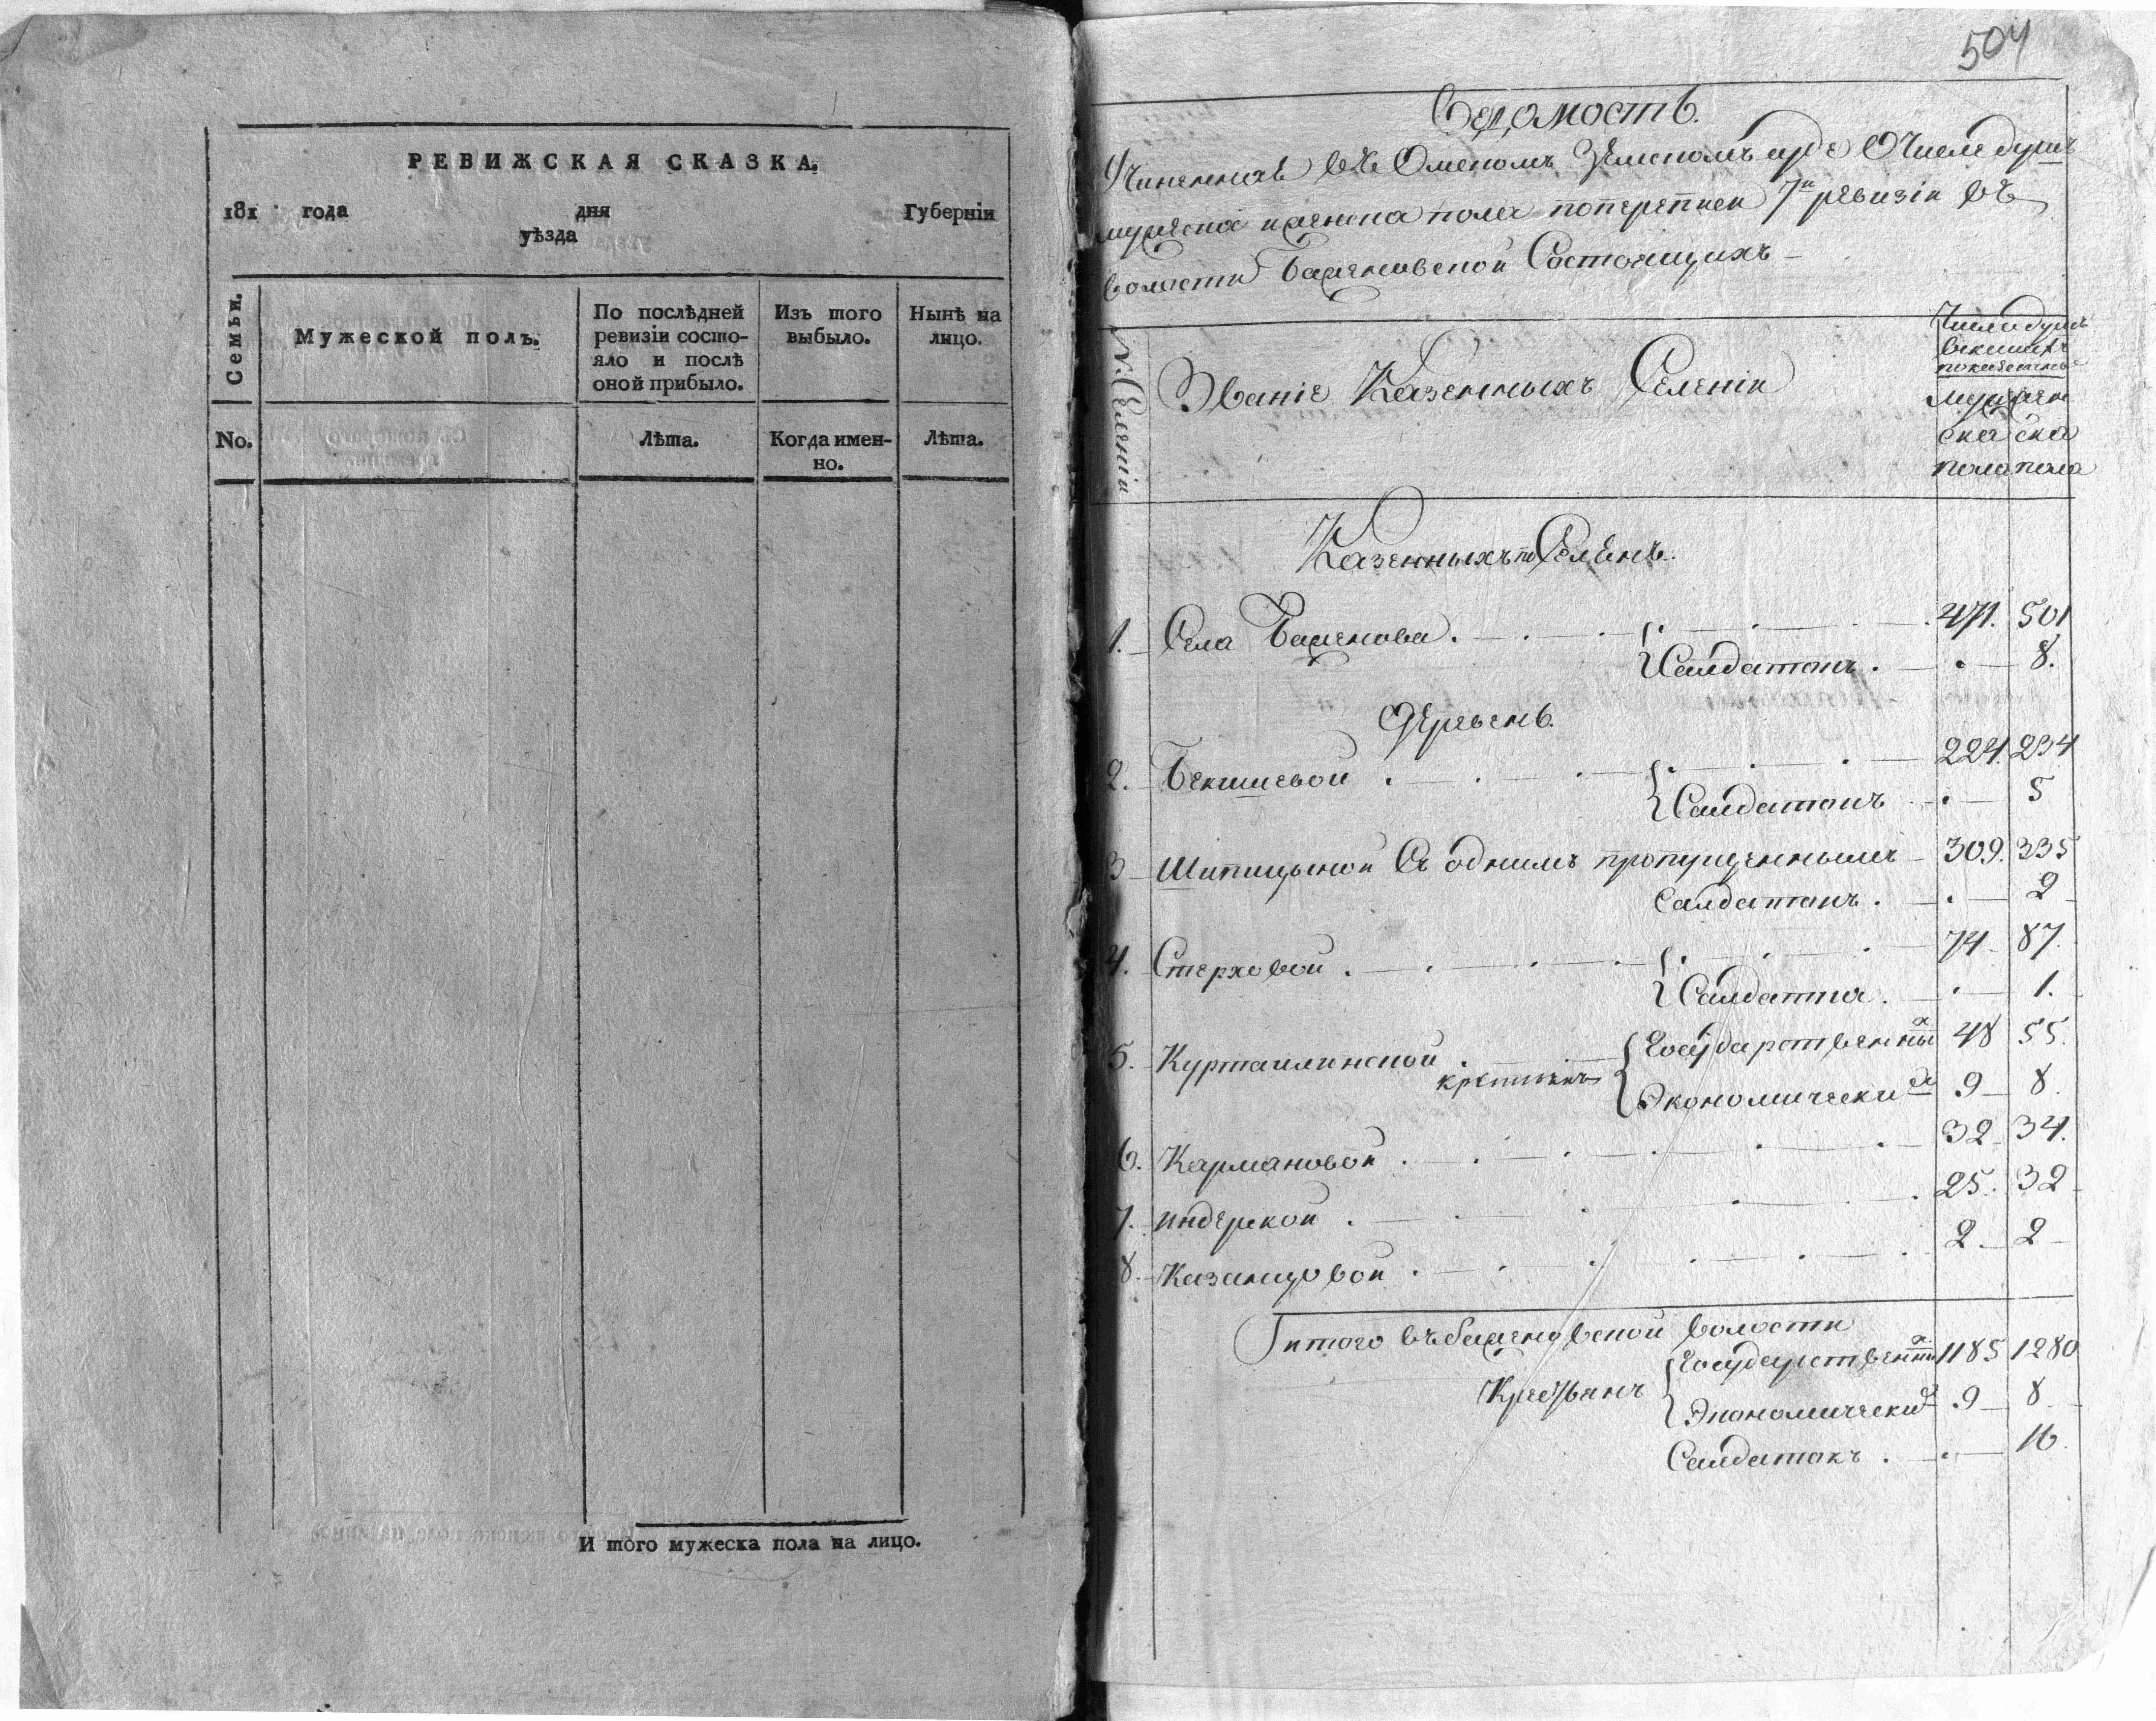 РЕВИЖСКАЯ СКАЗКА.
181 года дня Губерніи
уѣзда
Семьи.
Мужеской полъ.
По послѣдней
ревизіи состо-
яло и послѣ
оной прибыло.
Изъ того
выбыло.
Нынѣ на
лицо.
No.
Лѣта.
Когда имен-
но.
Лѣта.
И того мужеска пола на лицо.
504
Ведомость.
Учиненная въ Омскомъ Земскомъ суде О числе душъ
мужеска и женска пола по переписи 7й ревизіи въ
волости Баженовской Состоящихъ
№ Селеніи
Званіе Казенныхъ Селеніи
Число душъ
мужеска пола
женска пола
Казенныхъ по Селенъ.
1. Села Баженова. 471. 501
Салдатокъ. 8.
Деревень.
2. Бекишевой. 224. 234
Салдатокъ 5
3 Шипицыной Съ однимъ пропущеннымъ 309. 335
Салдатокъ. 2
4. Стерховой. 74 87.
Салдатка. 1.
5. Куртаилинской. Государственныхъ 48 55.
крестьянъ
Экономическихъ 9 8.
6. Кармановой. 32 34.
7. Индерской. 25. 32
8. Казанцовой. 2 2
Итого въ баженовской волости
Государственныхъ 1185 1280
Крестьянъ
Экономическихъ 9 8
Салдатокъ. 16.